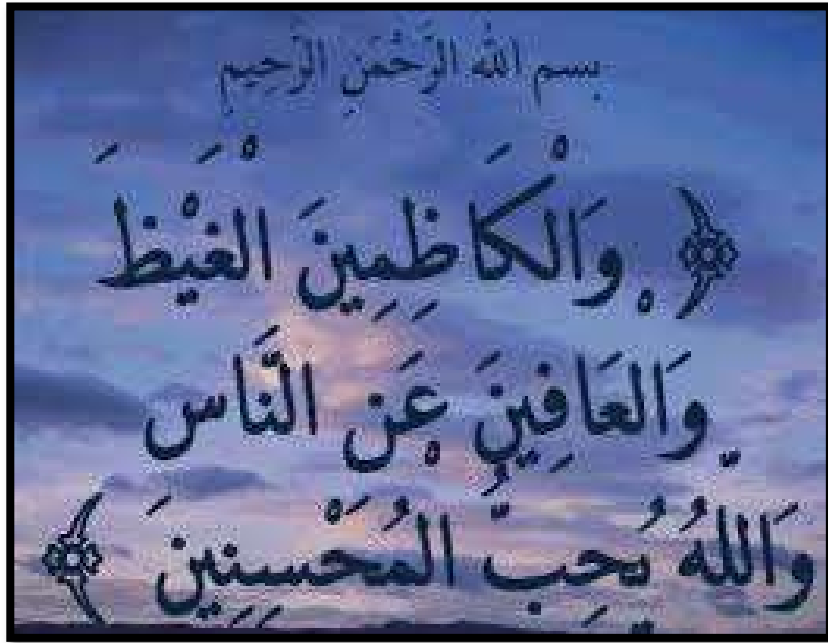 بسم الله الرَّحْمَنِ الرَّحِيمِ
﴿ وَالْكَاظِمِينَ الْغَيْظَ
وَالعَافِينَ عَنِ النَّاسِ
وَاللَّهُ يُحِبُّ المُحْسِنِينَ ﴾